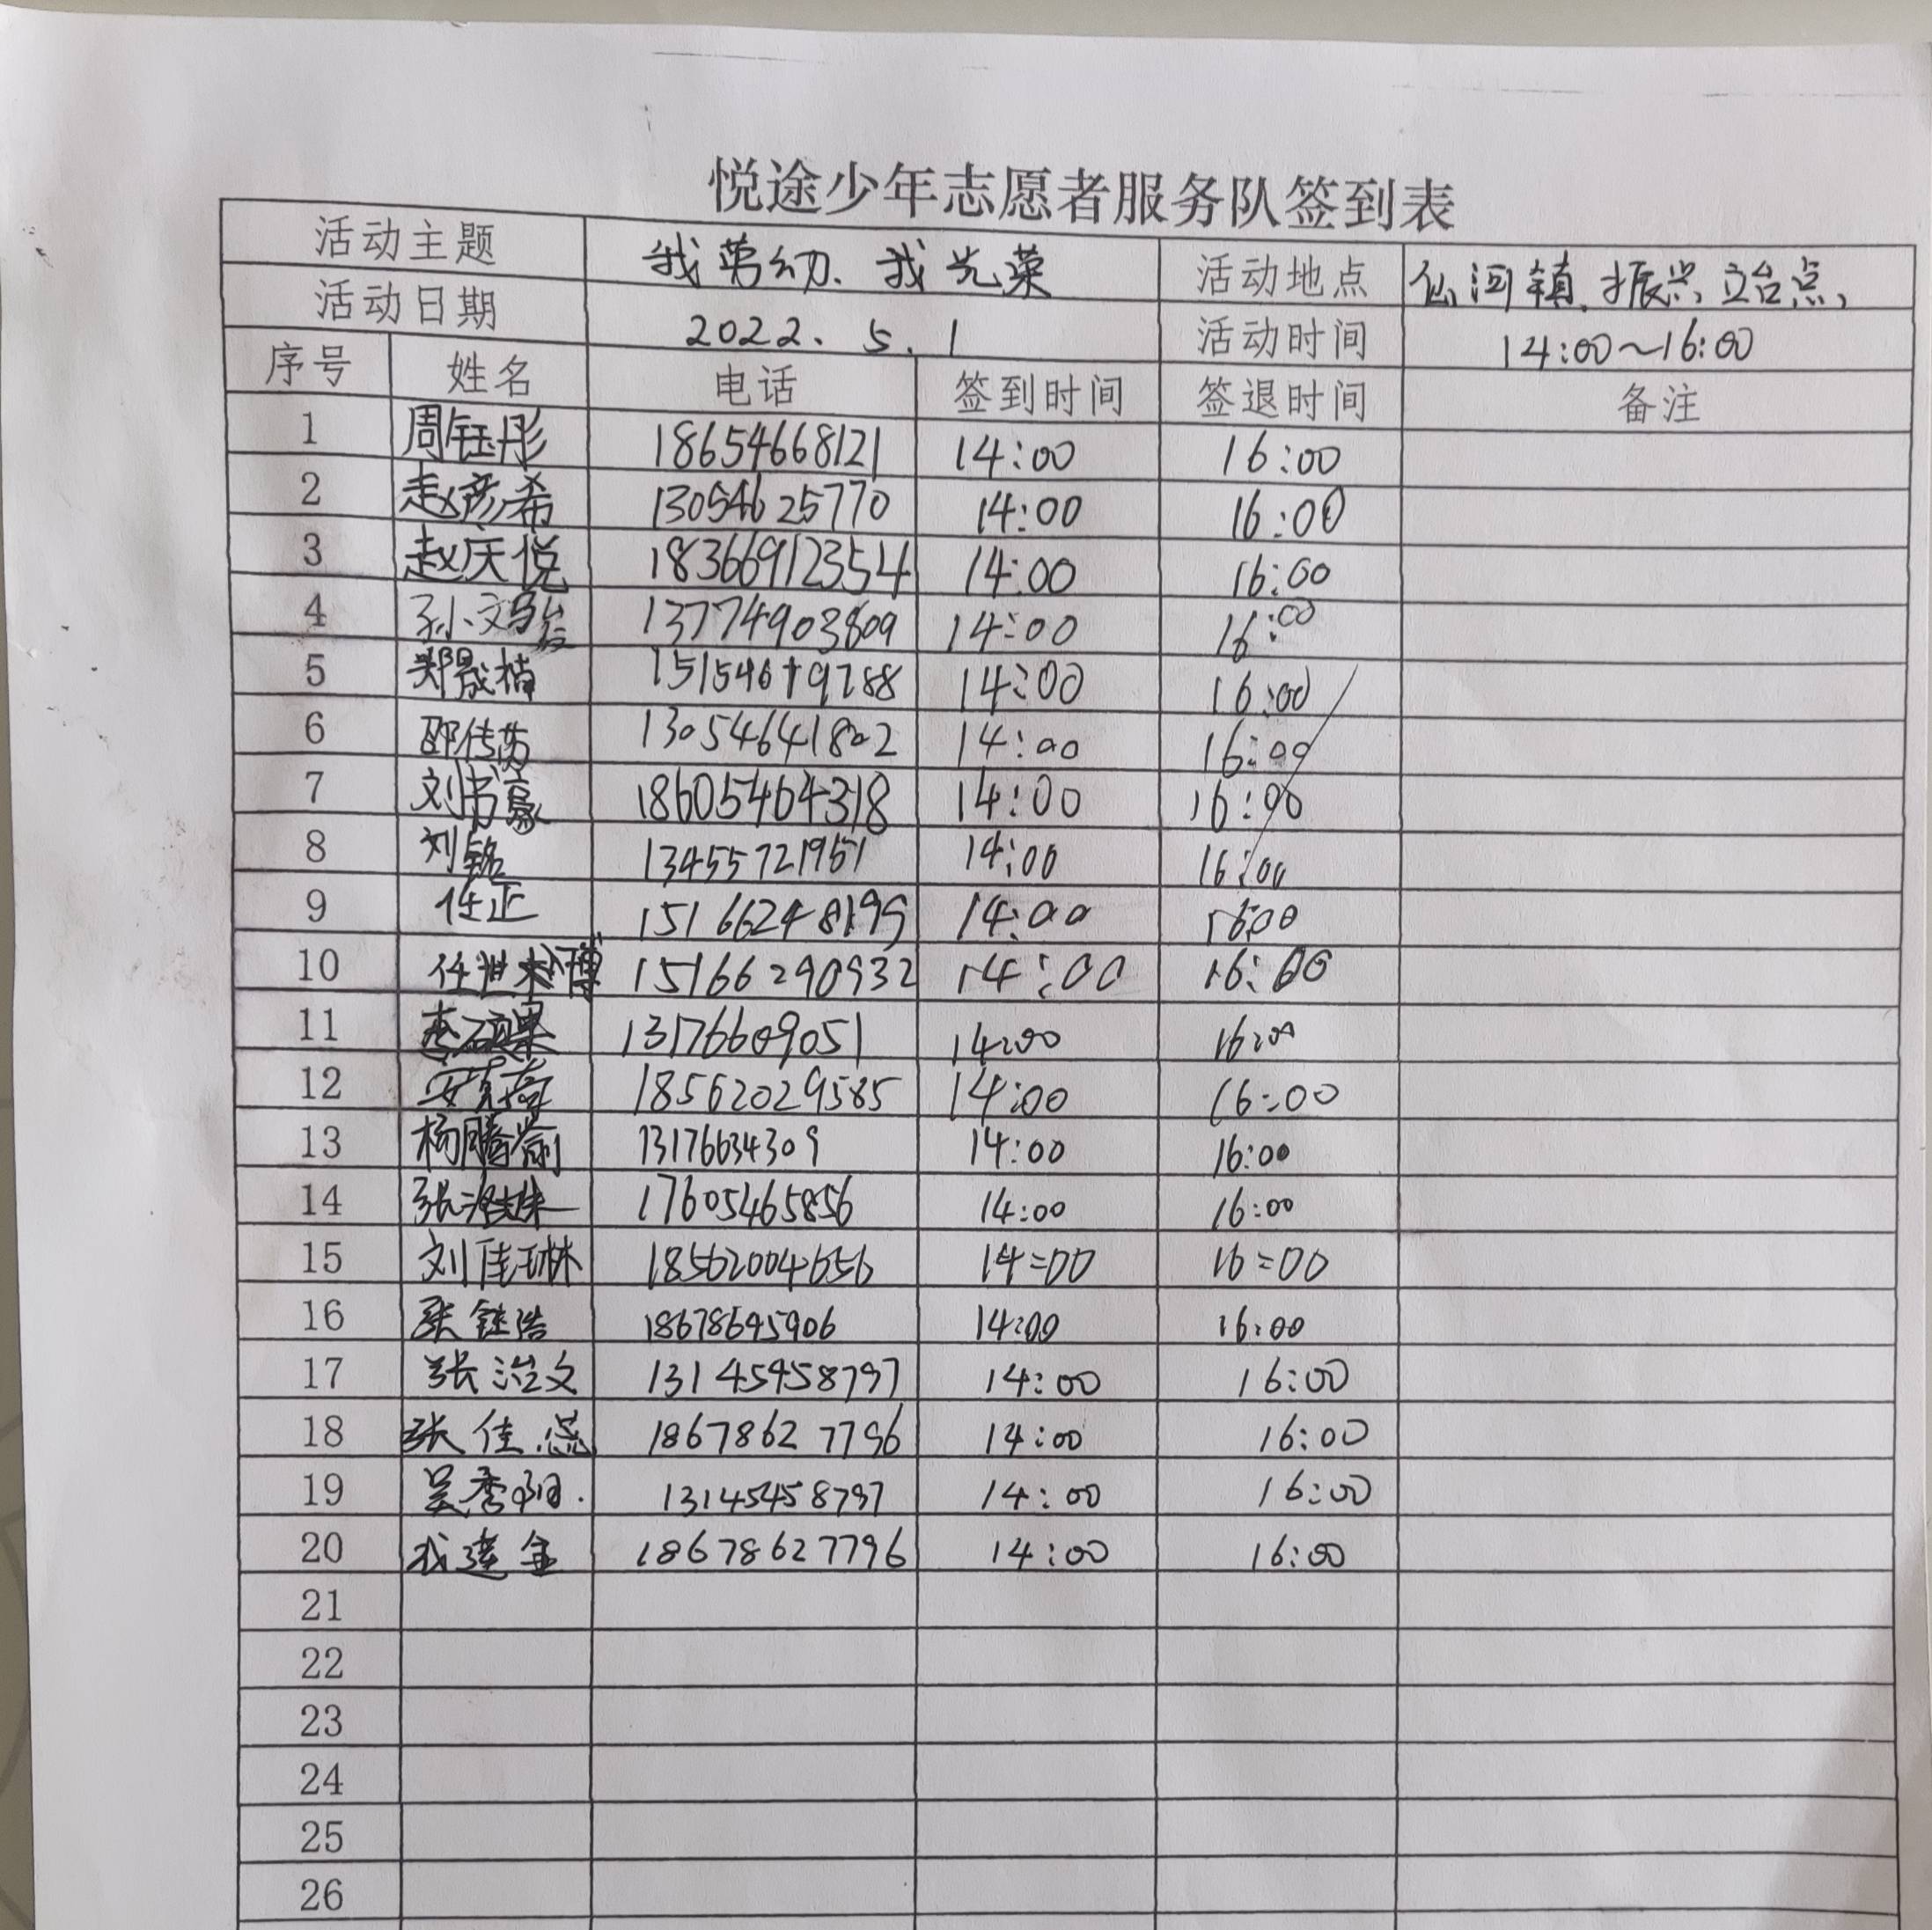 悦途少年志愿者服务队签到表
活动主题 我劳动、我光荣 活动地点 仙河镇、振兴站点
活动日期 2022.5.1 活动时间 14:00~16:00
序号 姓名 电话 签到时间 签退时间 备注
1 周钰彤 18654668121 14:00 16:00
2 赵彦希 13054625770 14:00 16:00
3 赵庆悦 18366912354 14:00 16:00
4 孙文 13774903809 14:00 16:00
5 郑晟楠 14:00 16:00
6 邵传 13054641802 14:00 16:00
7 刘书豪 18605464318 14:00 16:00
8 刘铭 13455721951 14:00 16:00
9 任正 15166248199 14:00 16:00
10 任世博 15166290932 14:00 16:00
11 13176609051 14:00 16:00
12 18562029585 14:00 16:00
13 杨腾 13176634309 14:00 16:00
14 张 17605465856 14:00 16:00
15 刘佳琳 18562004656 14=00 16=00
16 张钰浩 18678645906 14:00 16:00
17 张治文 13145458797 14:00 16:00
18 张佳 18678627796 14:00 16:00
19 吴秀阳. 13145458797 14:00 16:00
20 建金 18678627796 14:00 16:00
21
22
23
24
25
26